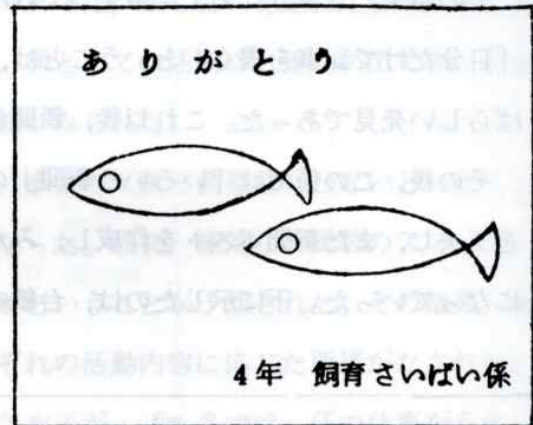 ありがとう
4年 飼育さいばい係